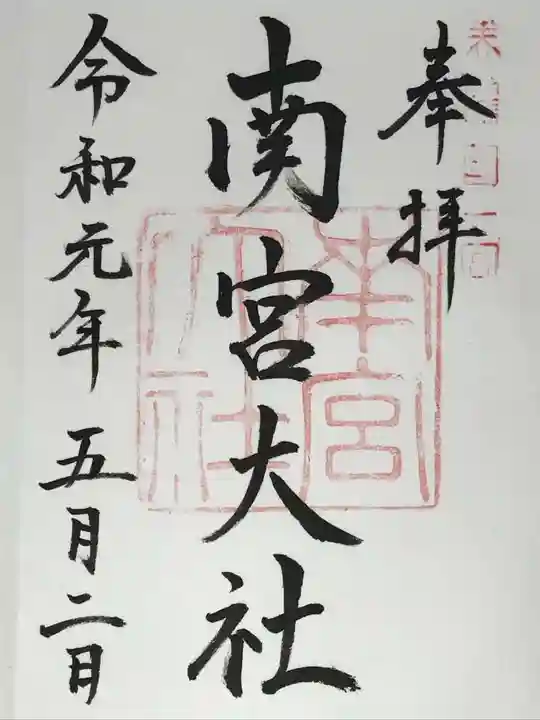 奉拝
南宮大社
南宮大社
令和元年五月二日